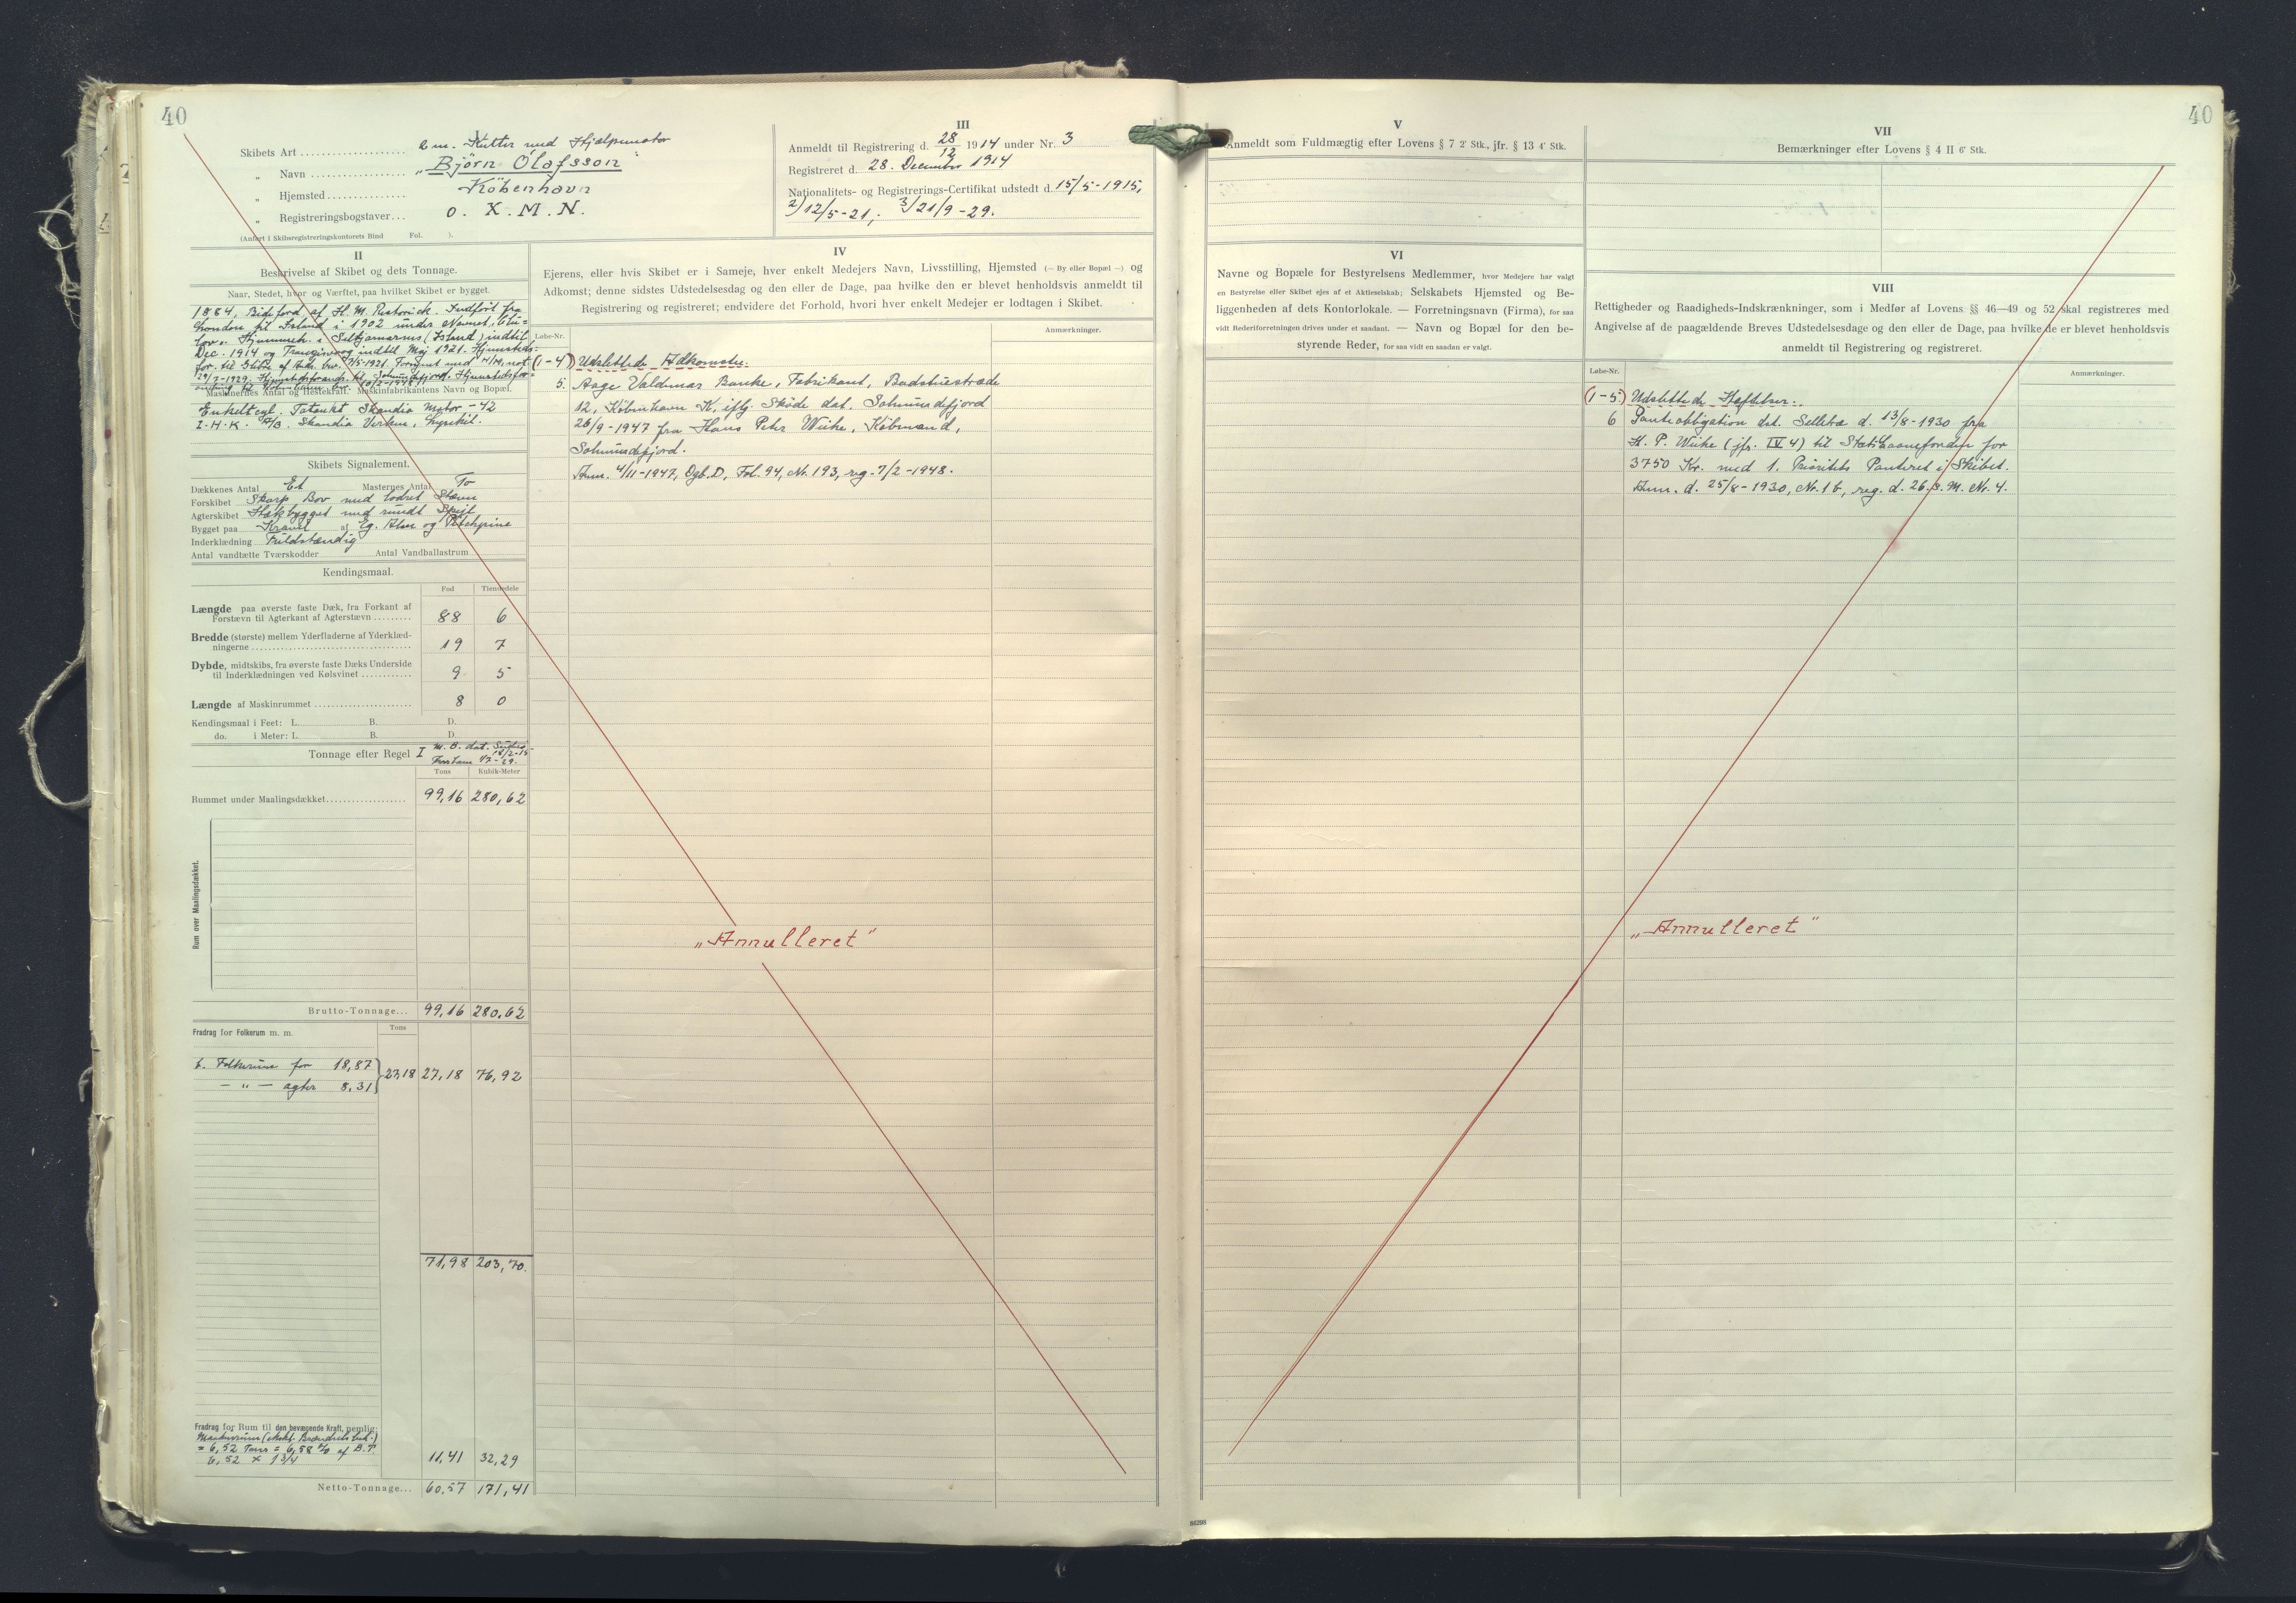 40
Skibets Art .................... 2 m. Kutter med Hjælpemotor
„ Navn .................. „Björn Ólafsson"
„ Hjemsted............... Köbenhavn
„ Registreringsbogstaver... O. X. M. N.
(Anført i Skibsregistreringskontorets Bind Fol. ).
III
Anmeldt til Registrering d. 28/12 1914 under Nr. 3
Registreret d. 28. December 1914
Nationalitets- og Registrerings-Certifikat udstedt d. 15/5-1915,
2) 12/5-21, 3) 21/9-29.
II
Beskrivelse af Skibet og dets Tonnage.
Naar, Stedet, hvor og Værftet, paa hvilket Skibet er bygget.
1884, Bideford af H. M. Restorick. Indført fra
London til Island i 1902 under Navnet
Hjemmeh. i Seltjarnarnes (Island) indtil
Dec. 1914 og Trangisvaag indtil Maj 1921. Hjemsteds-
for. til
Maskinernes Antal og Hestekraft. Maskinfabrikantens Navn og Bopæl.
Enkeltcyl. Totakt Skandia Motor - 42
I.H.K. A/B. Skandia Verken, Lysekil.
Skibets Signalement.
Dækkenes Antal Et Masternes Antal To
Forskibet Skarp Bov med lodret Stævn
Agterskibet Hækbygget med rundt Spejl
Bygget paa Kravel af Eg, Alm og Pitchpine
Inderklædning Fuldstændig
Antal vandtætte Tværskodder Antal Vandballastrum
Kendingsmaal.
Fod Tiendedele
Længde paa øverste faste Dæk, fra Forkant af
Forstævn til Agterkant af Agterstævn ......... 88 6
Bredde (største) mellem Yderfladerne af Yderklæd-
ningerne ..................................... 19 7
Dybde, midtskibs, fra øverste faste Dæks Underside
til Inderklædningen ved Kølsvinet ............ 9 5
Længde af Maskinrummet ....................... 8 0
Kendingsmaal i Feet: L. B. D.
do. i Meter: L. B. D.
Tonnage efter Regel I M. B. dat.
Tons Kubik-Meter
Rummet under Maalingsdækket................... 99,16 280,62
Rum over Maalingsdækket.
Brutto-Tonnage... 99,16 280,62
Fradrag for Folkerum m. m. Tons
b. Folkerum for 18,87
— „ — agter 8,31 } 27,18 27,18 76,92
71,98 203,70.
Fradrag for Rum til den bevægende Kraft, nemlig:
= 6,52 Tons = 6,58 % af B.T.
6,52 × 1 3/4 11,41 32,29
Netto-Tonnage... 60,57 171,41
IV
Ejerens, eller hvis Skibet er i Sameje, hver enkelt Medejers Navn, Livsstilling, Hjemsted (— By eller Bopæl —) og
Adkomst; denne sidstes Udstedelsesdag og den eller de Dage, paa hvilke den er blevet henholdsvis anmeldt til
Registrering og registreret; endvidere det Forhold, hvori hver enkelt Medejer er lodtagen i Skibet.
Løbe-Nr. Anmærkninger.
(1-4) Udslettede Adkomster.
5. Aage Valdemar Banke, Fabrikant, Badstuestræde
12, København K, iflg. Skøde dat. Solmundefjord
26/9-1947 fra Hans Peter Wiike, Købmand,
Solmundefjord.
Anm. 4/11-1947, Dgb. D, Fol. 94, Nr. 193, reg. 7/2-1948.
„Annulleret"
V
Anmeldt som Fuldmægtig efter Lovens § 7 2' Stk., jfr. § 13 4' Stk.
VI
Navne og Bopæle for Bestyrelsens Medlemmer, hvor Medejere har valgt
en Bestyrelse eller Skibet ejes af et Aktieselskab; Selskabets Hjemsted og Be-
liggenheden af dets Kontorlokale. — Forretningsnavn (Firma), for saa
vidt Rederiforretningen drives under et saadant. — Navn og Bopæl for den be-
styrende Reder, for saa vidt en saadan er valgt.
VII
Bemærkninger efter Lovens § 4 II 6' Stk.
40
VIII
Rettigheder og Raadigheds-Indskrænkninger, som i Medfør af Lovens §§ 46—49 og 52 skal registreres med
Angivelse af de paagældende Breves Udstedelsesdage og den eller de Dage, paa hvilke de er blevet henholdsvis
anmeldt til Registrering og registreret.
Løbe-Nr. Anmærkninger.
(1-5) Udslettede Hæftelser.
6 Panteobligation dat. Selletræ d. 13/8-1930 fra
H. P. Wiike (jfr. IV 4) til Statslaanefonden for
3750 Kr. med 1. Prioritets Panteret i Skibet.
Anm. d. 25/8-1930, Nr. 16, reg. d. 26. s. M. Nr. 4.
„Annulleret"
86298